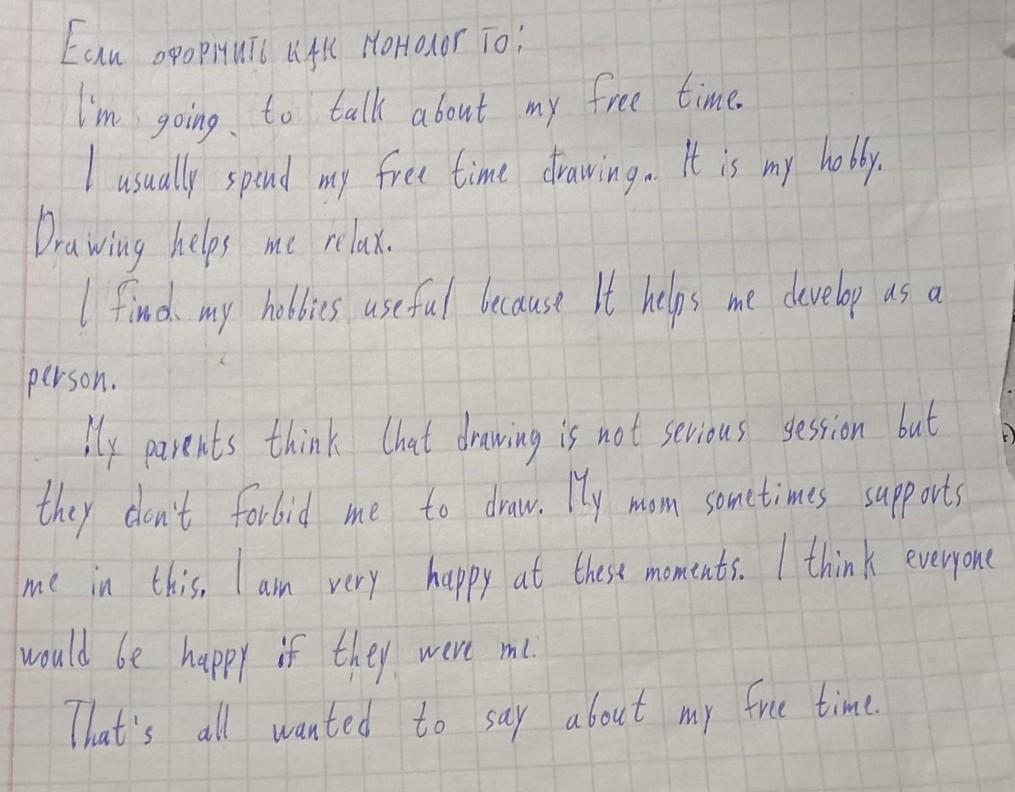 Если оформить как монолог то:
I'm going to talk about my free time.
I usually spend my free time drawing. It is my hobby.
Drawing helps me relax.
I find my hobbies useful because It helps me develop as a
person.
My parents think that drawing is not serious session but
they don't forbid me to draw. My mom sometimes supports
me in this. I am very happy at these moments. I think everyone
would be happy if they were me.
That's all wanted to say about my free time.